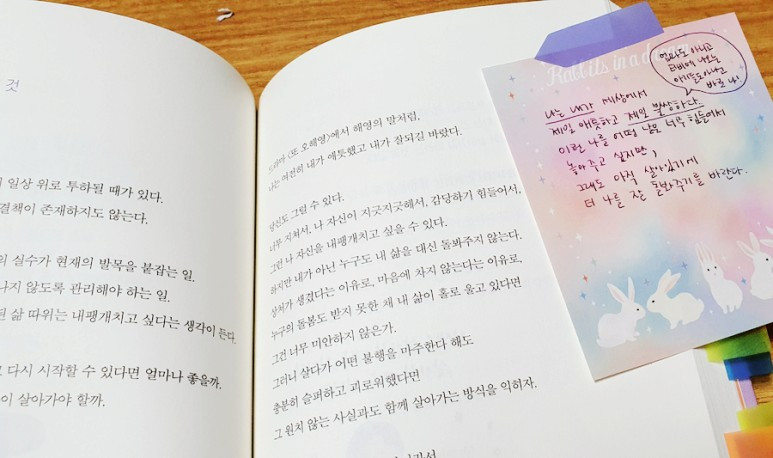 것
일상 위로 투하될 때가 있다.
결책이 존재하지도 않는다.
의 실수가 현재의 발목을 붙잡는 일.
나지 않도록 관리해야 하는 일.
된 삶 따위는 내팽개치고 싶다는 생각이 든다.
다시 시작할 수 있다면 얼마나 좋을까.
이 살아가야 할까.
드라마 〈또 오해영〉에서 해영의 말처럼,
나는 여전히 내가 애틋했고 내가 잘되길 바랐다.
당신도 그럴 수 있다.
너무 지쳐서, 나 자신이 지긋지긋해서, 감당하기 힘들어서,
그런 나 자신을 내팽개치고 싶을 수 있다.
하지만 내가 아닌 누구도 내 삶을 대신 돌봐주지 않는다.
상처가 생겼다는 이유로, 마음에 차지 않는다는 이유로,
누구의 돌봄도 받지 못한 채 내 삶이 홀로 울고 있다면
그건 너무 미안하지 않은가.
그러니 살다가 어떤 불행을 마주한다 해도
충분히 슬퍼하고 괴로워했다면
그 원치 않는 사실과도 함께 살아가는 방식을 익히자.
Rabbits in a
엄마도 아니고
티비에 나오는
애기들도 아니고
바로 나!
나는 내가 세상에서
제일 애틋하고 제일 불쌍하다..
이런 나를 어떤 날은 너무 힘들어서
놓아주고 싶지만,
그래도 아직 살아있기에
더 나를 잘 돌봐주기를 바란다.